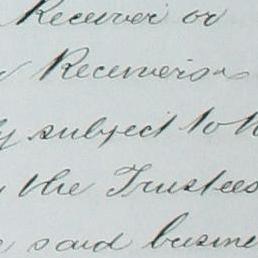 Receiver or
Receivers
subject to
the Trustees
said busine